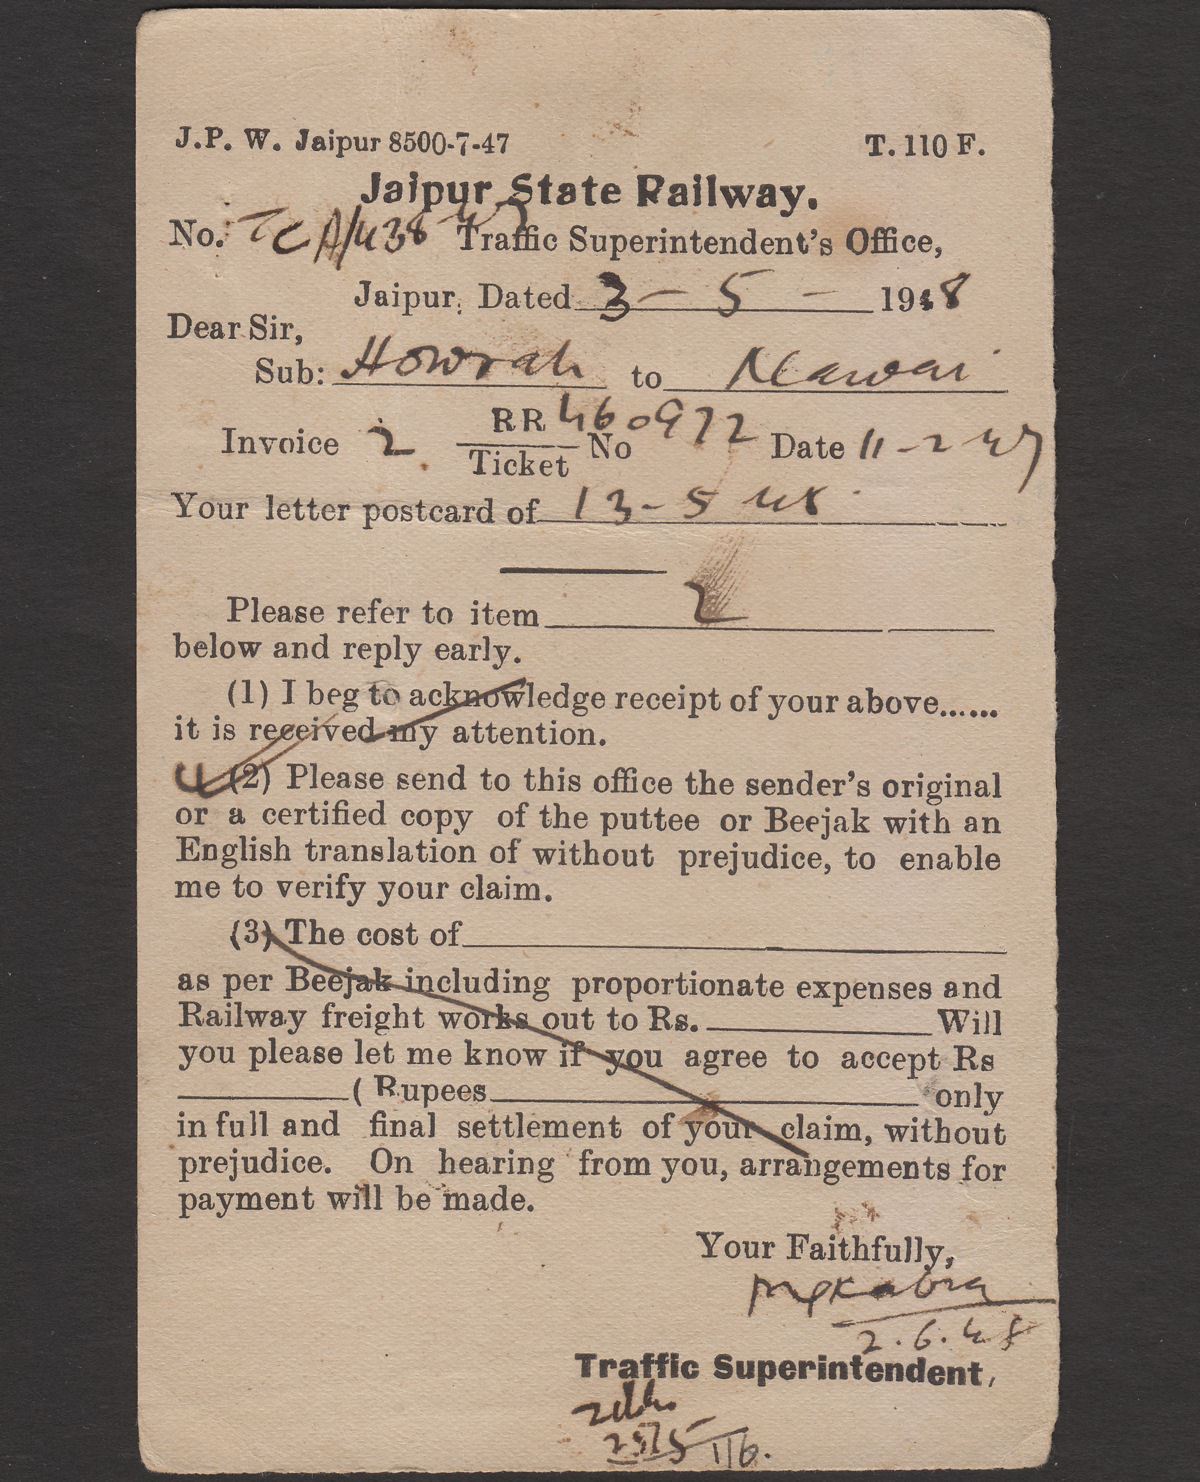 J.P. W. Jaipur 8500-7-47 T. 110 F.
Jaipur State Railway.
No. TCA/438 47 Traffic Superintendent's Office,
Jaipur, Dated 3 - 5 - 1948
Dear Sir,
Sub: Howrah to Nawai
Invoice 2 RR/Ticket No 460972 Date 11-2-47
Your letter postcard of 13-5 48
Please refer to item 2
below and reply early.
(1) I beg to acknowledge receipt of your above......
it is received my attention.
(2) Please send to this office the sender's original
or a certified copy of the puttee or Beejak with an
English translation of without prejudice, to enable
me to verify your claim.
(3) The cost of
as per Beejak including proportionate expenses and
Railway freight works out to Rs. Will
you please let me know if you agree to accept Rs
( Rupees only
in full and final settlement of your claim, without
prejudice. On hearing from you, arrangements for
payment will be made.
Your Faithfully,
2.6.48
Traffic Superintendent,